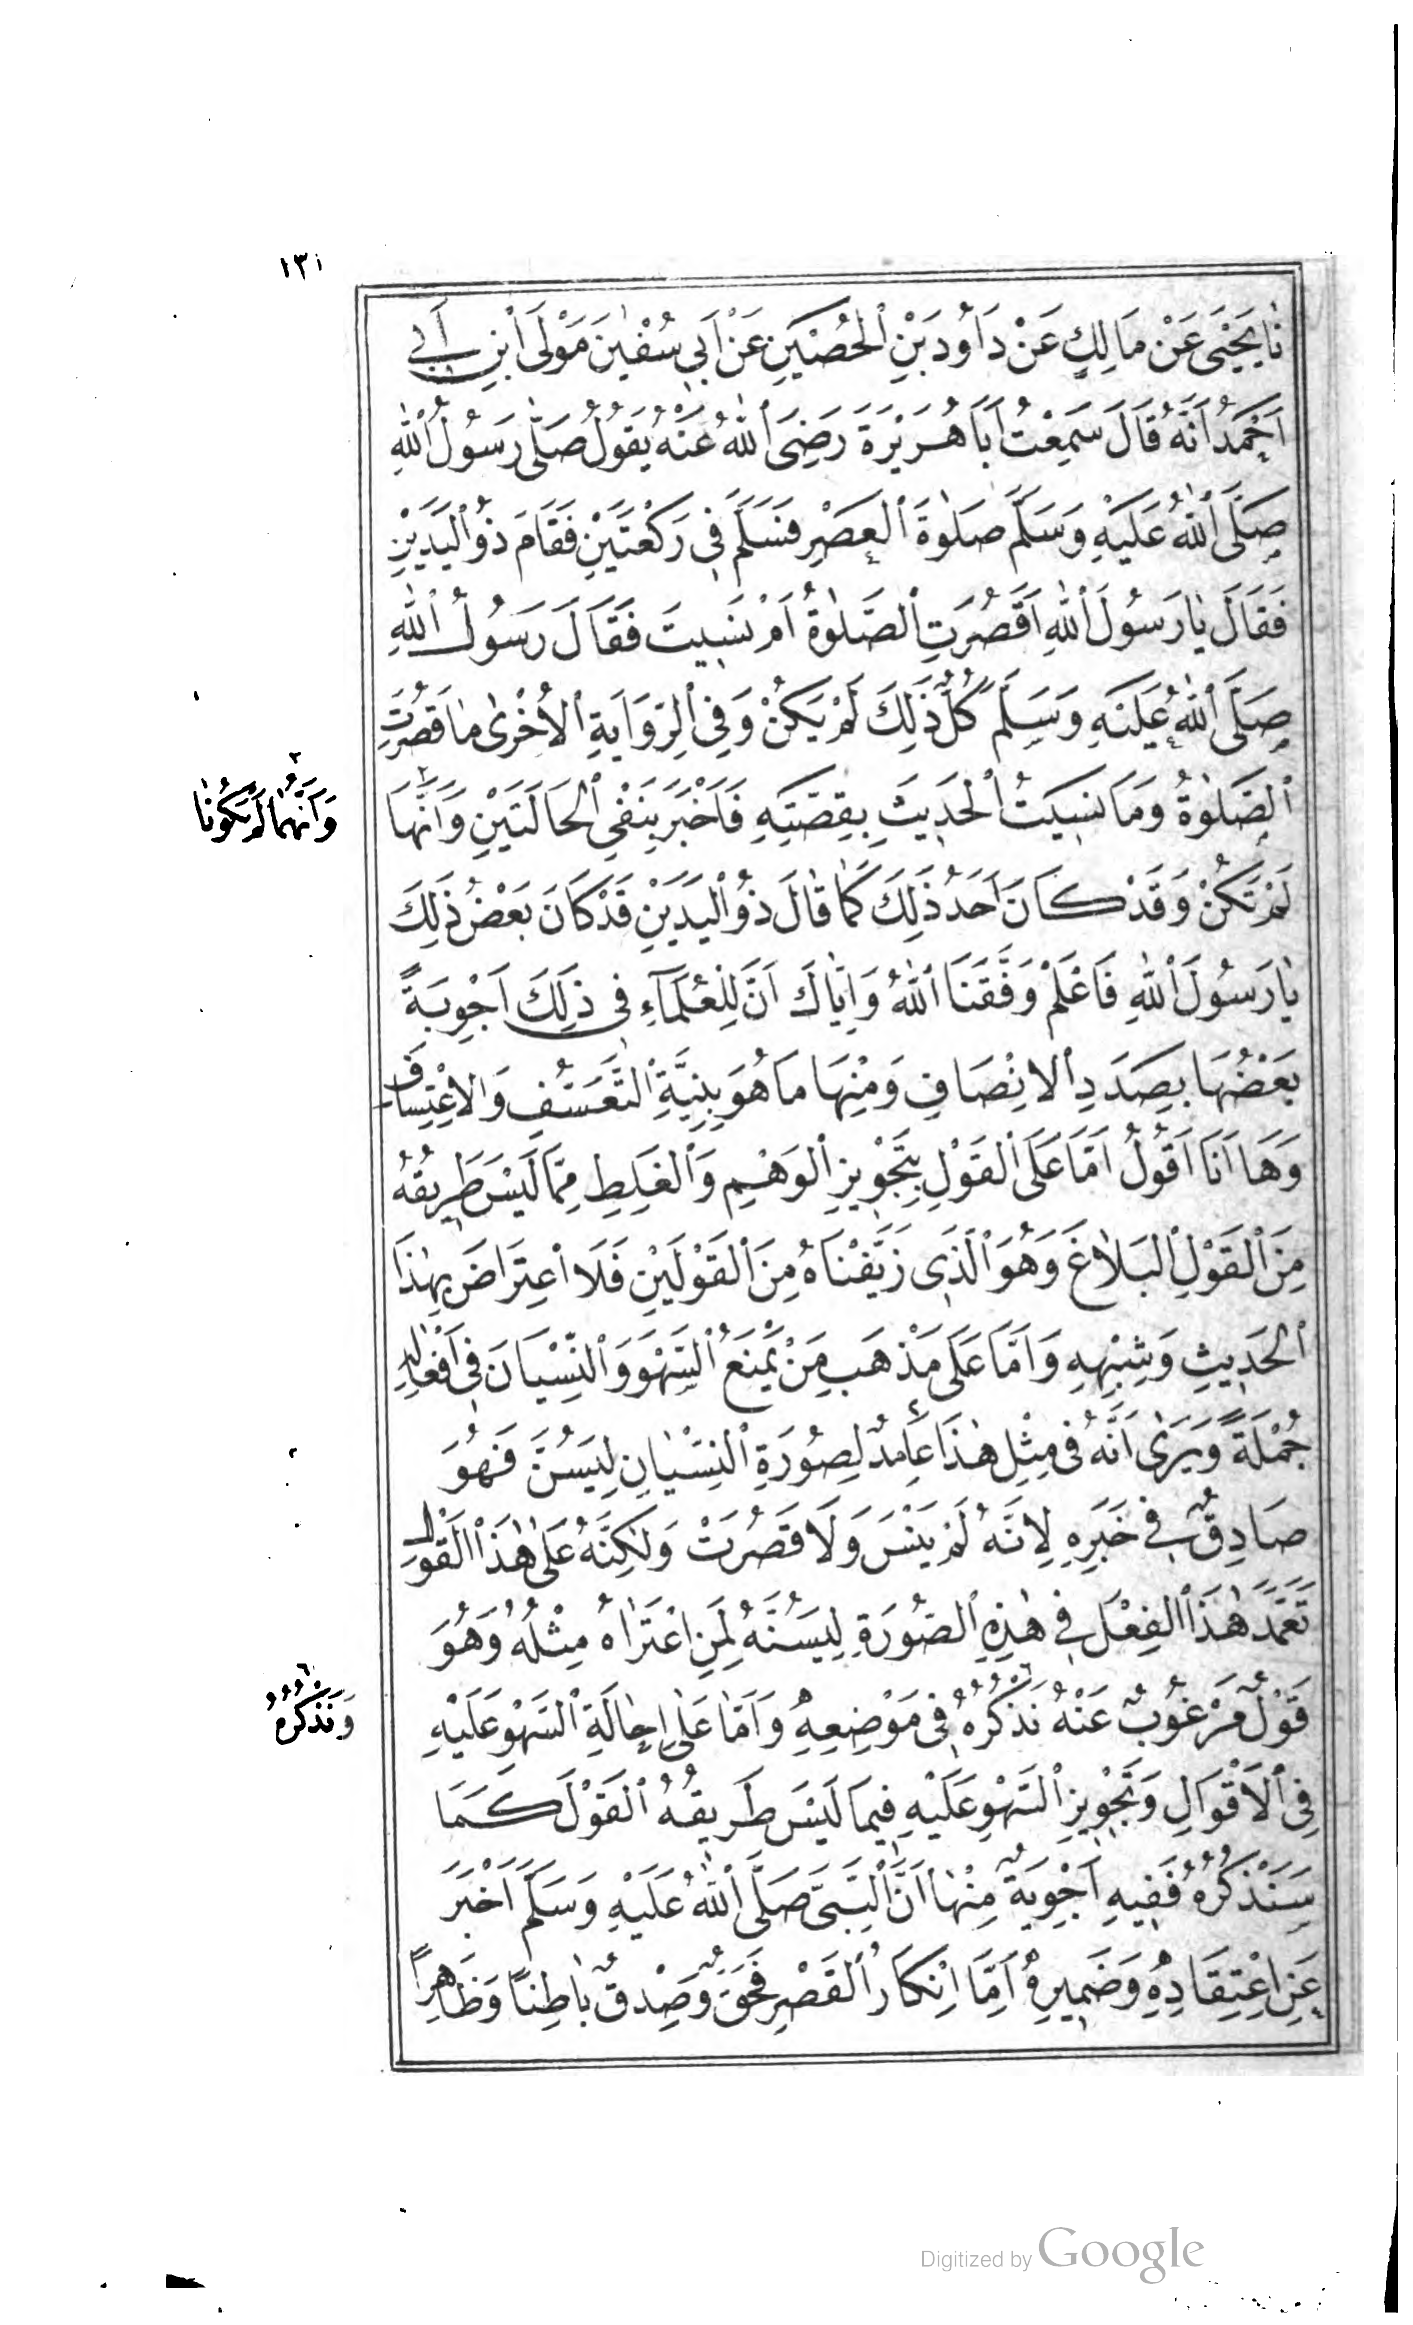 ١٣١
نَا يَحْيَى عَنْ مَالِكٍ عَنْ دَاوُدَ بْنِ الْحُصَيْنِ عَنْ أَبِي سُفْيٰنَ مَوْلَى ابْنِ أَبِي
أَحْمَدَ أَنَّهُ قَالَ سَمِعْتُ أَبَا هُرَيْرَةَ رَضِيَ اللّٰهُ عَنْهُ يَقُولُ صَلَّى رَسُولُ اللّٰهِ
صَلَّى اللّٰهُ عَلَيْهِ وَسَلَّمَ صَلٰوةَ الْعَصْرِ فَسَلَّمَ فِي رَكْعَتَيْنِ فَقَامَ ذُو الْيَدَيْنِ
فَقَالَ يٰا رَسُولَ اللّٰهِ أَقَصُرَتِ الصَّلٰوةُ أَمْ نَسِيتَ فَقَالَ رَسُولُ اللّٰهِ
صَلَّى اللّٰهُ عَلَيْهِ وَسَلَّمَ كُلُّ ذٰلِكَ لَمْ يَكُنْ وَفِي الرِّوَايَةِ الْأُخْرٰى مٰا قَصُرَتِ
الصَّلٰوةُ وَمَا نَسِيتُ الْحَدِيثَ بِقِصَّتِهِ فَأَخْبَرَ بِنَفْيِ الْحَالَتَيْنِ وَأَنَّهَا
وَأَنَّهُمَا لَمْ تَكُونٰا
لَمْ تَكُنْ وَقَدْ كَانَ أَحَدُ ذٰلِكَ كَمَا قٰالَ ذُو الْيَدَيْنِ قَدْ كَانَ بَعْضُ ذٰلِكَ
يٰا رَسُولَ اللّٰهِ فَاعْلَمْ وَفَّقَنَا اللّٰهُ وَإِيَّاكَ أَنَّ لِلْعُلَمَآءِ فِي ذٰلِكَ أَجْوِبَةً
بَعْضُهَا بِصَدَدِ الْإِنْصَافِ وَمِنْهَا مَا هُوَ بِنِيَّةِ التَّعَسُّفِ وَالْإِعْتِسَافِ
وَهَا أَنَا أَقُولُ أَمَّا عَلَى الْقَوْلِ بِتَجْوِيزِ الْوَهْمِ وَالْغَلَطِ مِمَّا لَيْسَ طَرِيقُهُ
مِنَ الْقَوْلِ الْبَلَاغَ وَهُوَ الَّذِي زَيَّفْنَاهُ مِنَ الْقَوْلَيْنِ فَلَا اعْتِرَاضَ بِهٰذَا
الْحَدِيثِ وَشِبْهِهِ وَأَمَّا عَلَى مَذْهَبِ مَنْ يَمْنَعُ السَّهْوَ وَالنِّسْيَانَ فِي أَفْعَالِهِ
جُمْلَةً وَيَرٰى أَنَّهُ فِي مِثْلِ هٰذَا عَامِدٌ لِصُورَةِ النِّسْيٰانِ لِيَسُنَّ فَهُوَ
صَادِقٌ فِي خَبَرِهِ لِأَنَّهُ لَمْ يَنْسَ وَلَا قَصُرَتْ وَلٰكِنَّهُ عَلٰى هٰذَا الْقَوْلِ
تَعَمَّدَ هٰذَا الْفِعْلَ فِي هٰذِهِ الصُّورَةِ لِيَسُنَّهُ لِمَنِ اعْتَرٰاهُ مِثْلُهُ وَهُوَ
قَوْلٌ مَرْغُوبٌ عَنْهُ نَذْكُرُهُ فِي مَوْضِعِهِ وَأَمَّا عَلٰى إِحٰالَةِ السَّهْوِ عَلَيْهِ
وَنَذْكُرُهُ
فِي الْأَقْوَالِ وَتَجْوِيزِ السَّهْوِ عَلَيْهِ فِيمَا لَيْسَ طَرِيقُهُ الْقَوْلَ كَمَا
سَنَذْكُرُهُ فَفِيهِ أَجْوِبَةٌ مِنْهٰا أَنَّ النَّبِيَّ صَلَّى اللّٰهُ عَلَيْهِ وَسَلَّمَ أَخْبَرَ
عَنِ اعْتِقَادِهِ وَضَمِيرِهِ أَمَّا إِنْكَارُ الْقَصْرِ فَحَقٌّ وَصِدْقٌ بٰاطِنًا وَظَاهِرًا
Digitized by Google